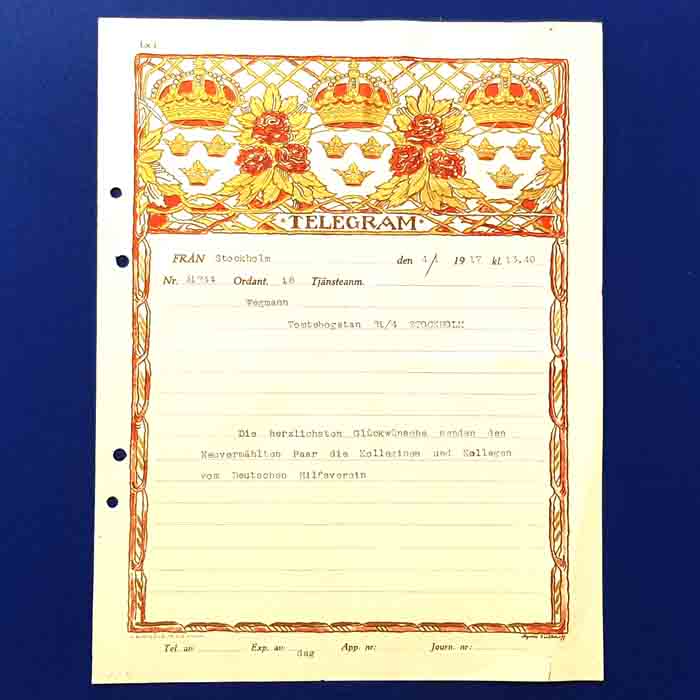 Lx 1
·TELEGRAM·
FRÅN Stockholm den 4/1 1917 kl. 13,40
Nr. Ordant. 18 Tjänsteanm.
Wegmann
31/4 STOCKHOLM
Die herzlichsten Glückwünsche senden den
Neuvermählten Paar die Kolleginen und Kollegen
vom Deutschen Hilfsverein
Tel. an: Exp. an: dag App. nr: Journ. nr: